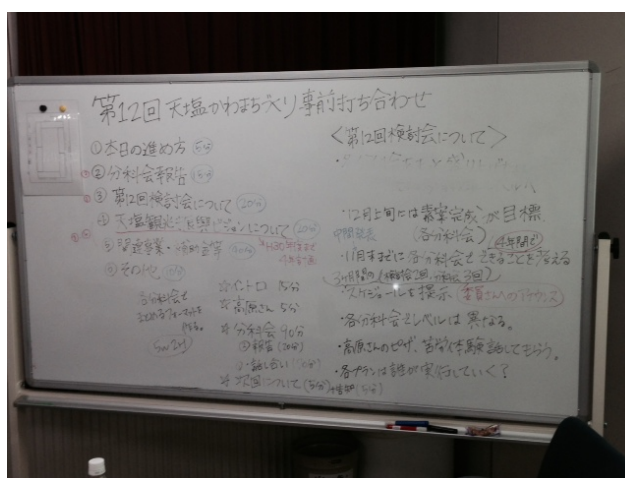 第12回 天塩かわまちづくり事前打ち合わせ
①本日の進め方 (5分)
②分科会報告 (15分)
③第12回検討会について (20分)
④天塩観光について (20分)
⑤関連事業・等
⑥その他
分科会
フォーマットを
5W2H
☆イントロ 15分
☆高原さん 5分
☆分科会 90分
報告 (20分)
・話し合い
☆次回について (5分)
<第12回検討会について>
・12月上旬には素案完成が目標
中間発表
(各分科会)
(4年間で)
・11月末までに各分科会でできることを考える
3ヶ月間の
・スケジュールを提示 (委員さんへのアナウンス)
・各分科会でレベルは異なる。
・高原さんのピザ、苦労体験話してもらう。
・各プランは誰が実行していく?